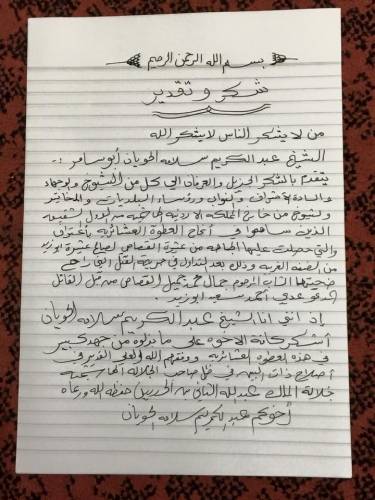 بسم الله الرحمن الرحيم
شكر وتقدير
من لا يشكر الناس لا يشكر الله
الشيخ عبد الكريم سلامه الحويان أبو سامر :-
يتقدم بالشكر الجزيل والعرفان الى كل من الشيوخ والوجهاء
والساده الأشراف والنواب ورؤساء البلديات والمخاتير
والشيوخ من خارج المملكه الاردنية الهاشميه من الدول الشقيقه
الذين ساهموا في أنجاح العطوه العشائريه بأعتراف
والتي حصلت عليها الجاهه من عشيرة القصاص لصالح عشيرة ابوزيد
من الضفه الغربيه وذلك بعد التداول في جريمة القتل التي راح
ضحيتها الشاب المرحوم جمال محمد جميل القصاص من قبل القاتل
المدعو عدي أحمد سعيد ابوزيد.
إذ انني انا الشيخ عبد الكريم سلامه الحويان
أشكر كافة الاخوه على ما بذلوه من جهد كبير
في هذه العطوه العشائريه ووفقهم الله العلي القدير في
أصلاح ذات البين في ظل صاحب الجلالة الهاشميه
جلالة الملك عبد الله الثاني بن الحسين حفظه الله ورعاه
أخوكم عبد الكريم سلامه الحويان